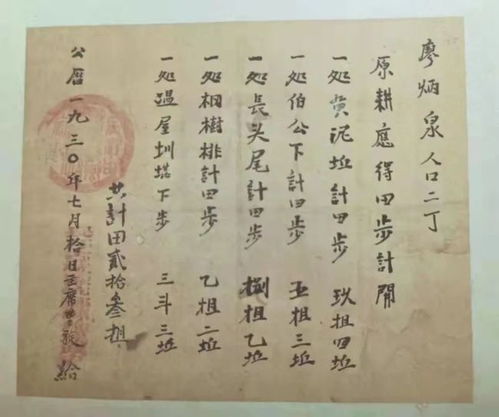 廖炳泉 人口二丁
原耕應得田步計開
一処黄泥坵計田步 玖租四坵
一処伯公下計田步 五租三坵
一処長头尾計田步 捌租乙坵
一処桐樹排計田步 乙租二坵
一処過屋圳塔下步 三斗三坵
共計田貳拾叁租
公曆一九三〇年七月拾日主席 給